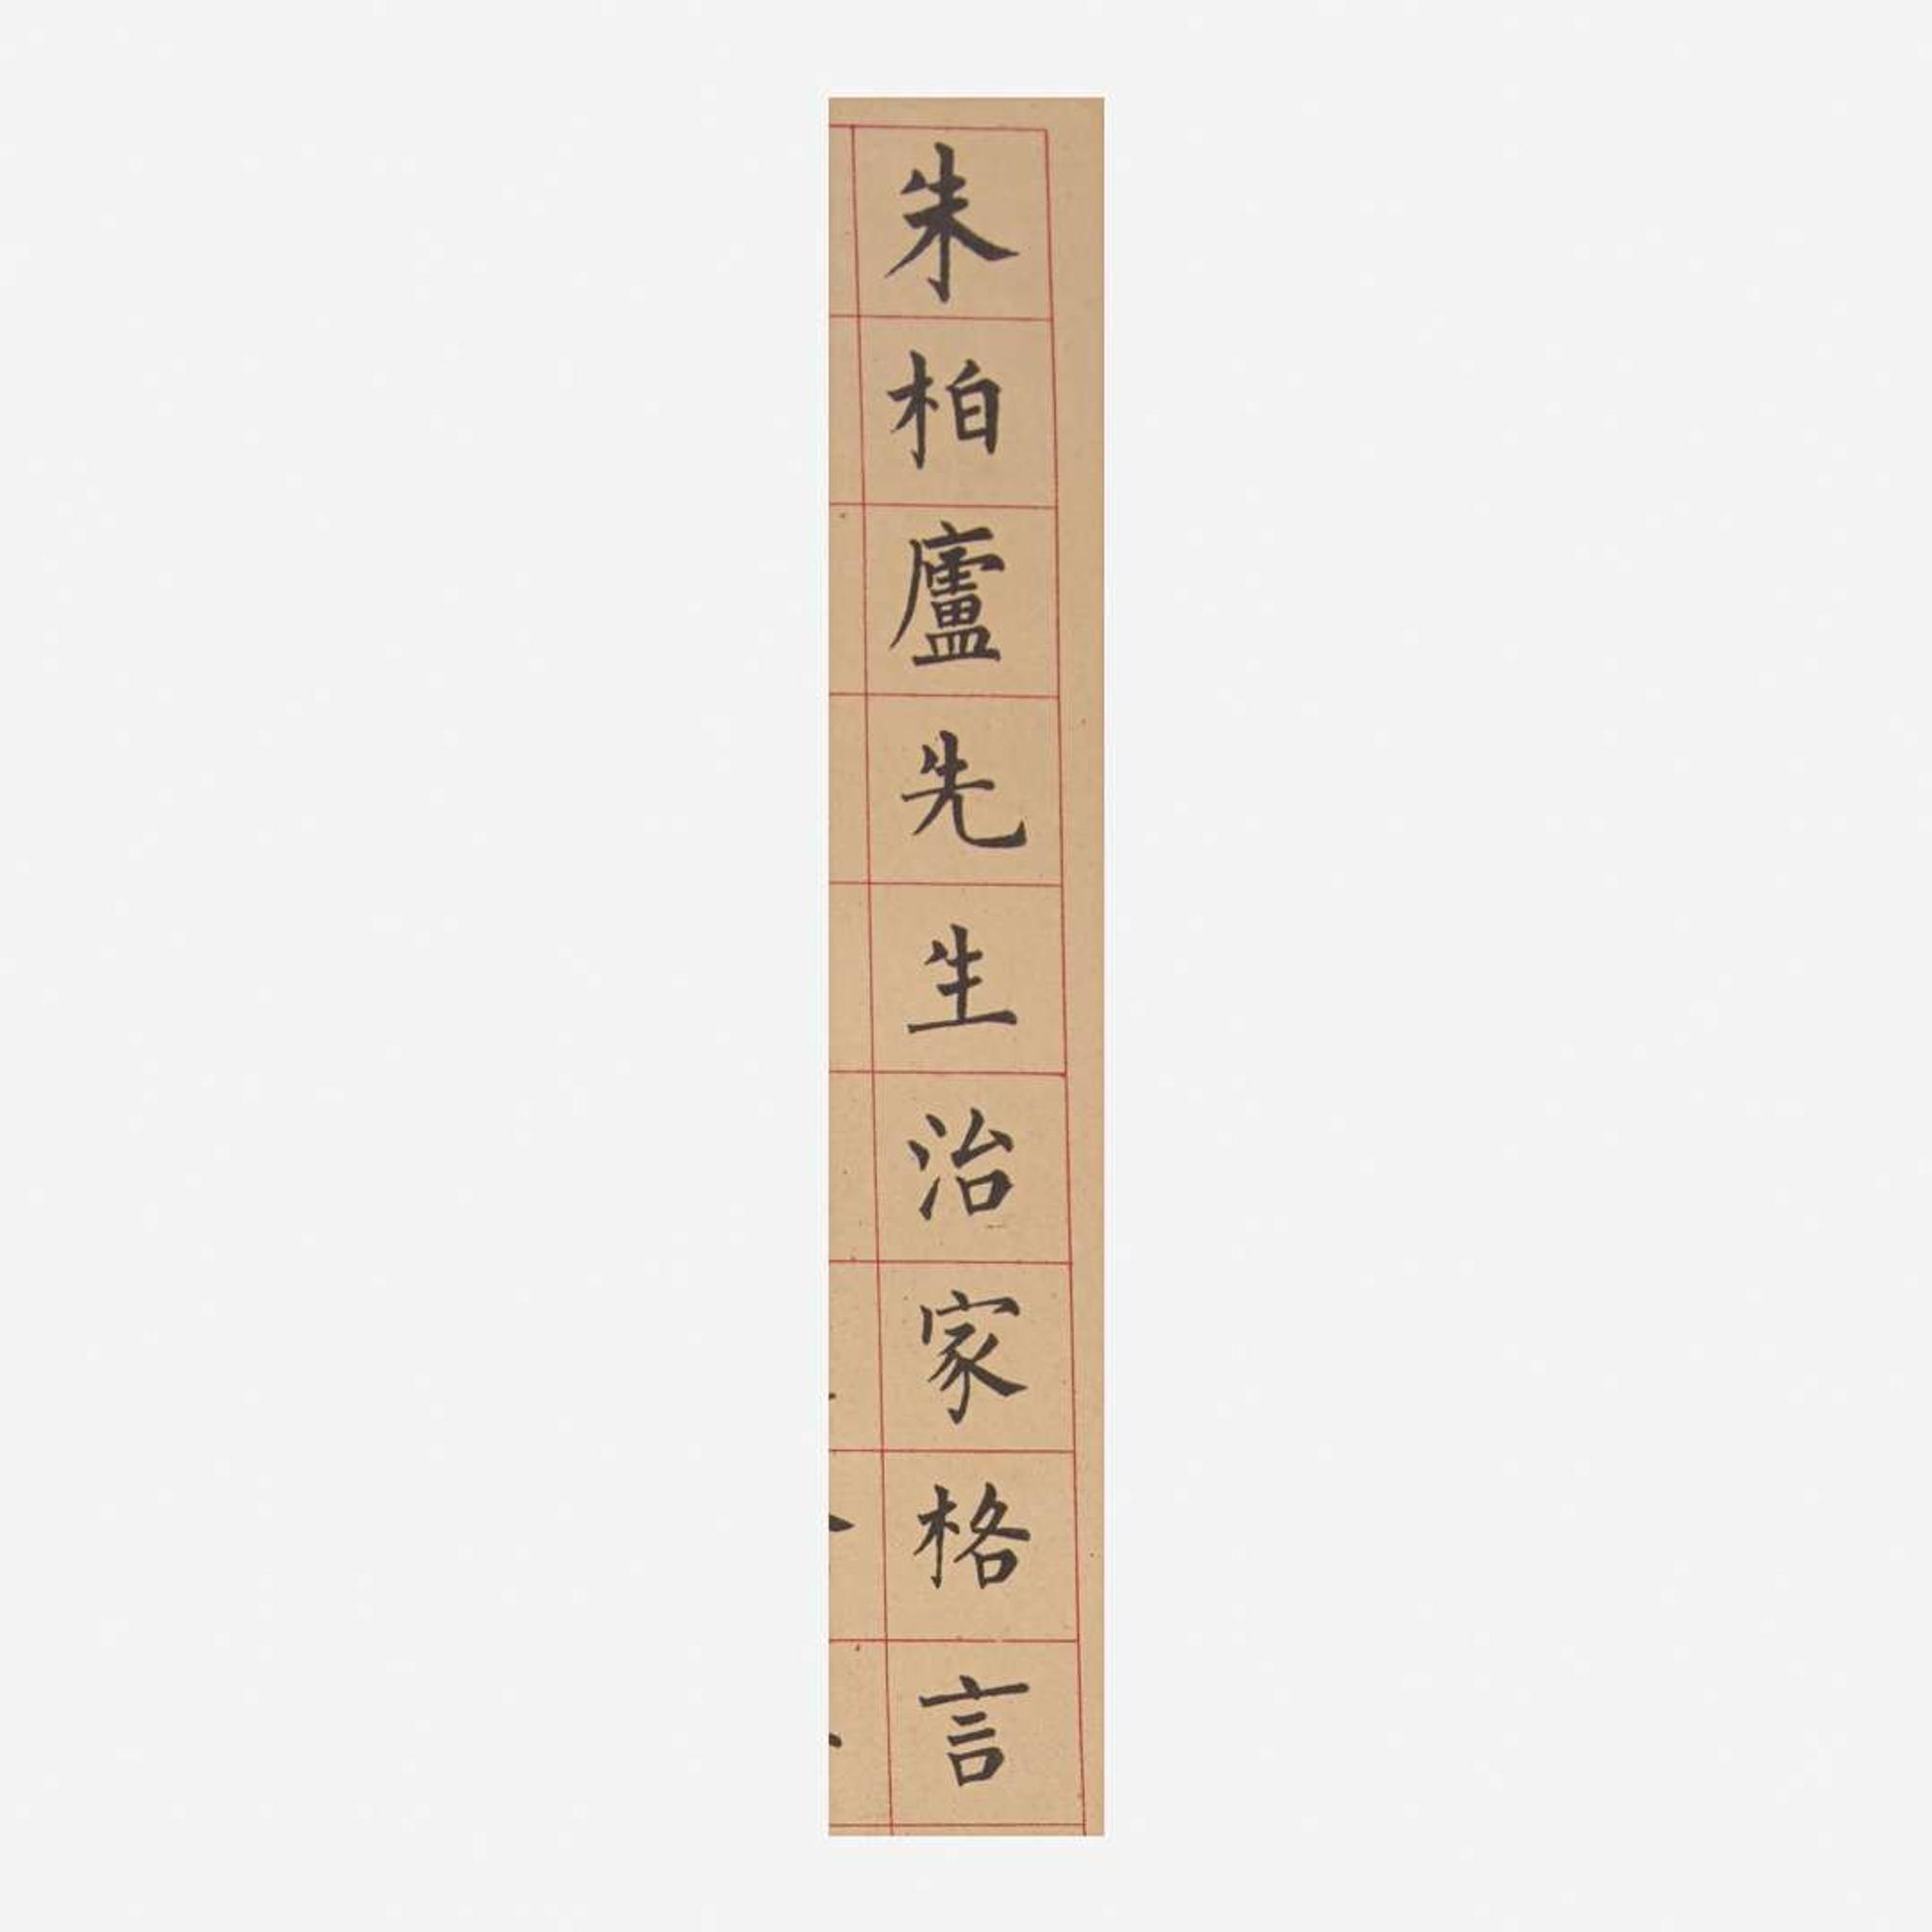 朱柏廬先生治家格言